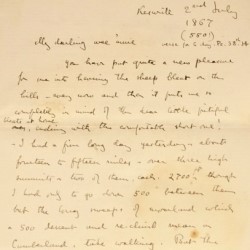 Keswick 2nd July
1867
(550)
My darling wee
you have put quite a new pleasure
for me into hearing the sheep bleat on the
hills - way now and then it puts me so
in mind of the dear little pitiful
ending with the comfortable short one!
- I had a fine long day yesterday - about
fourteen to fifteen miles - over three high
summits - two of them each 2700 ft though
I had only to go down 500 between them
but the long sweeps of moorland which
a 500 descent and re-climb means in
Cumberland, take walking. But the